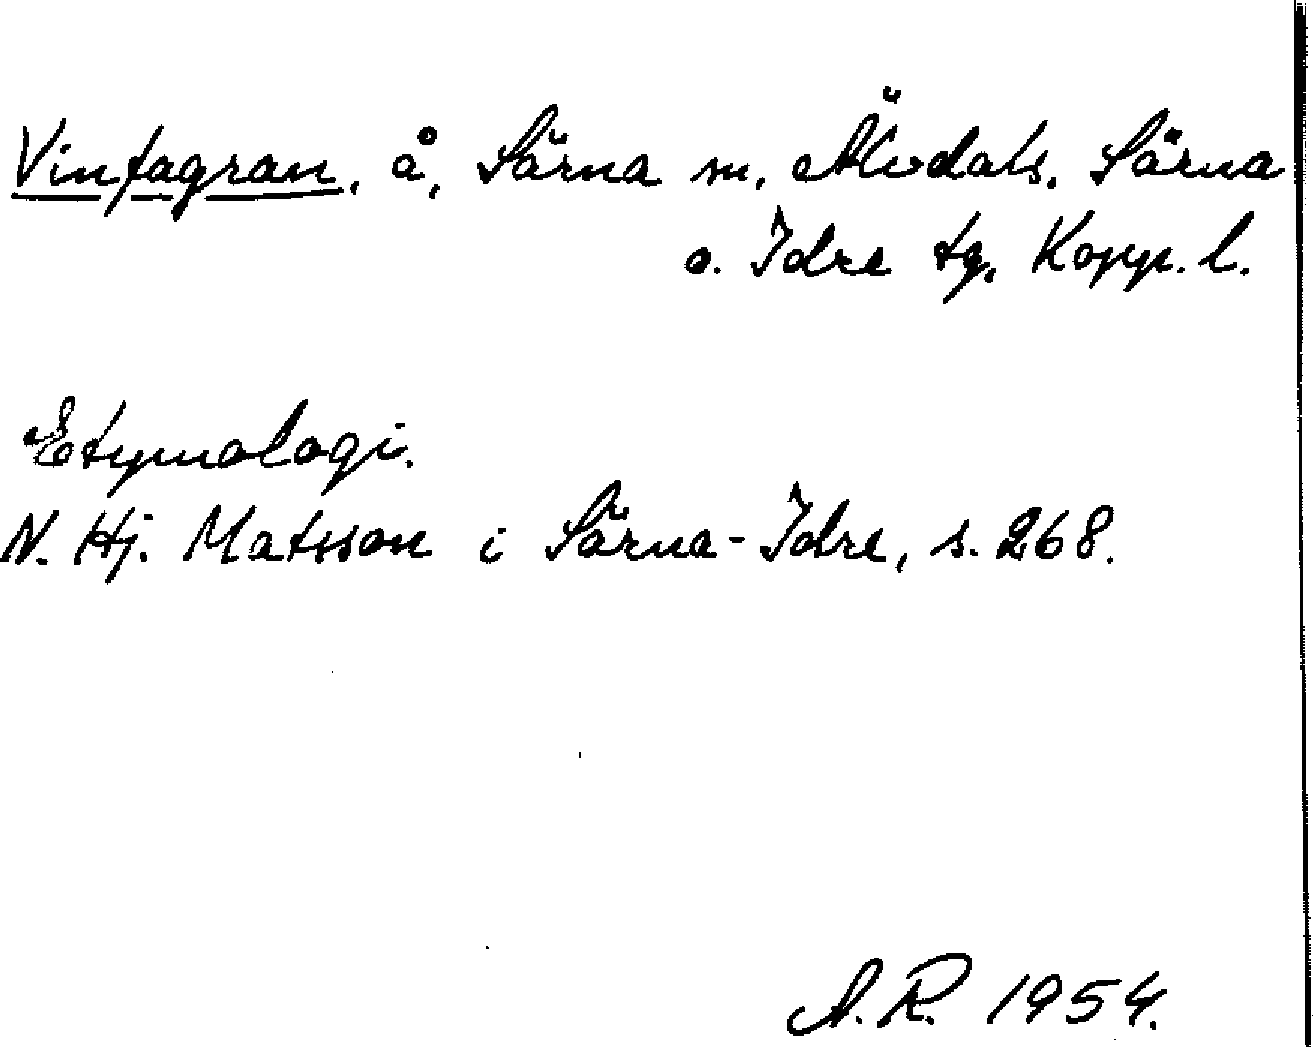 Vinfagran, å, Särna sn, Älvdals, Särna
o. Idre tg, Kopp. l.
Etymologi.
N. Hj. Matsson i Särna-Idre, s. 268.
A.R. 1954.